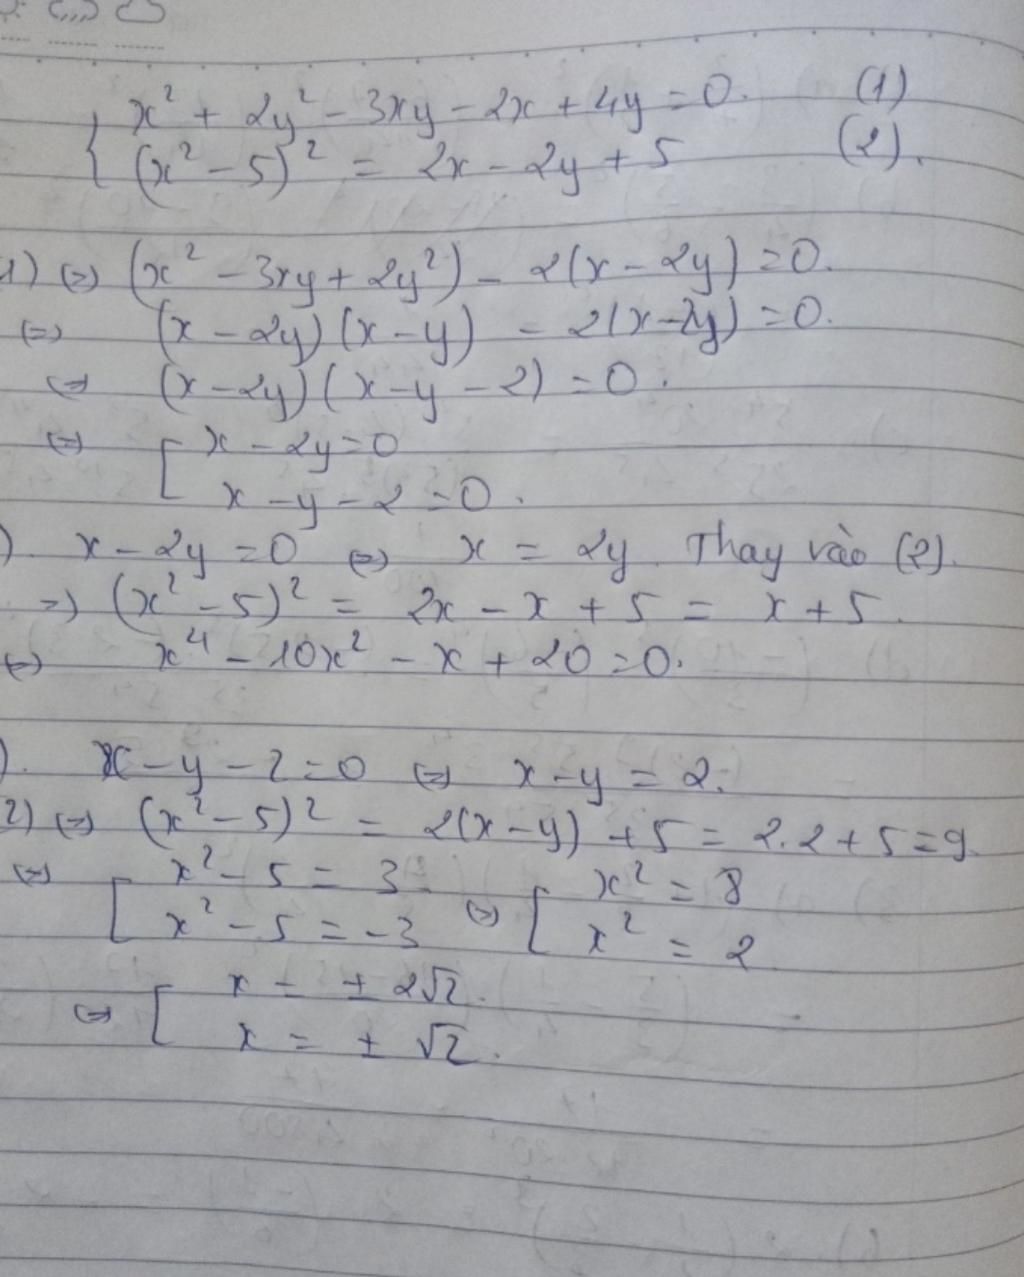 { x² + 2y² - 3xy - 2x + 4y = 0. (1)
(x² - 5)² = 2x - 2y + 5 (2).
1) (=) (x² - 3xy + 2y²) - 2(x - 2y) = 0.
(=) (x - 2y) (x - y) - 2(x - 2y) = 0.
(=) (x - 2y) (x - y - 2) = 0.
(=) [ x - 2y = 0
x - y - 2 = 0.
). x - 2y = 0 (=) x = 2y. Thay vào (2).
=) (x² - 5)² = 2x - x + 5 = x + 5.
(=) x⁴ - 10x² - x + 20 = 0.
). x - y - 2 = 0 (=) x - y = 2.
2) (=) (x² - 5)² = 2(x - y) + 5 = 2.2 + 5 = 9.
(=) [ x² - 5 = 3 (=) [ x² = 8
x² - 5 = -3 x² = 2
(=) [ x = ± 2√2.
x = ± √2.